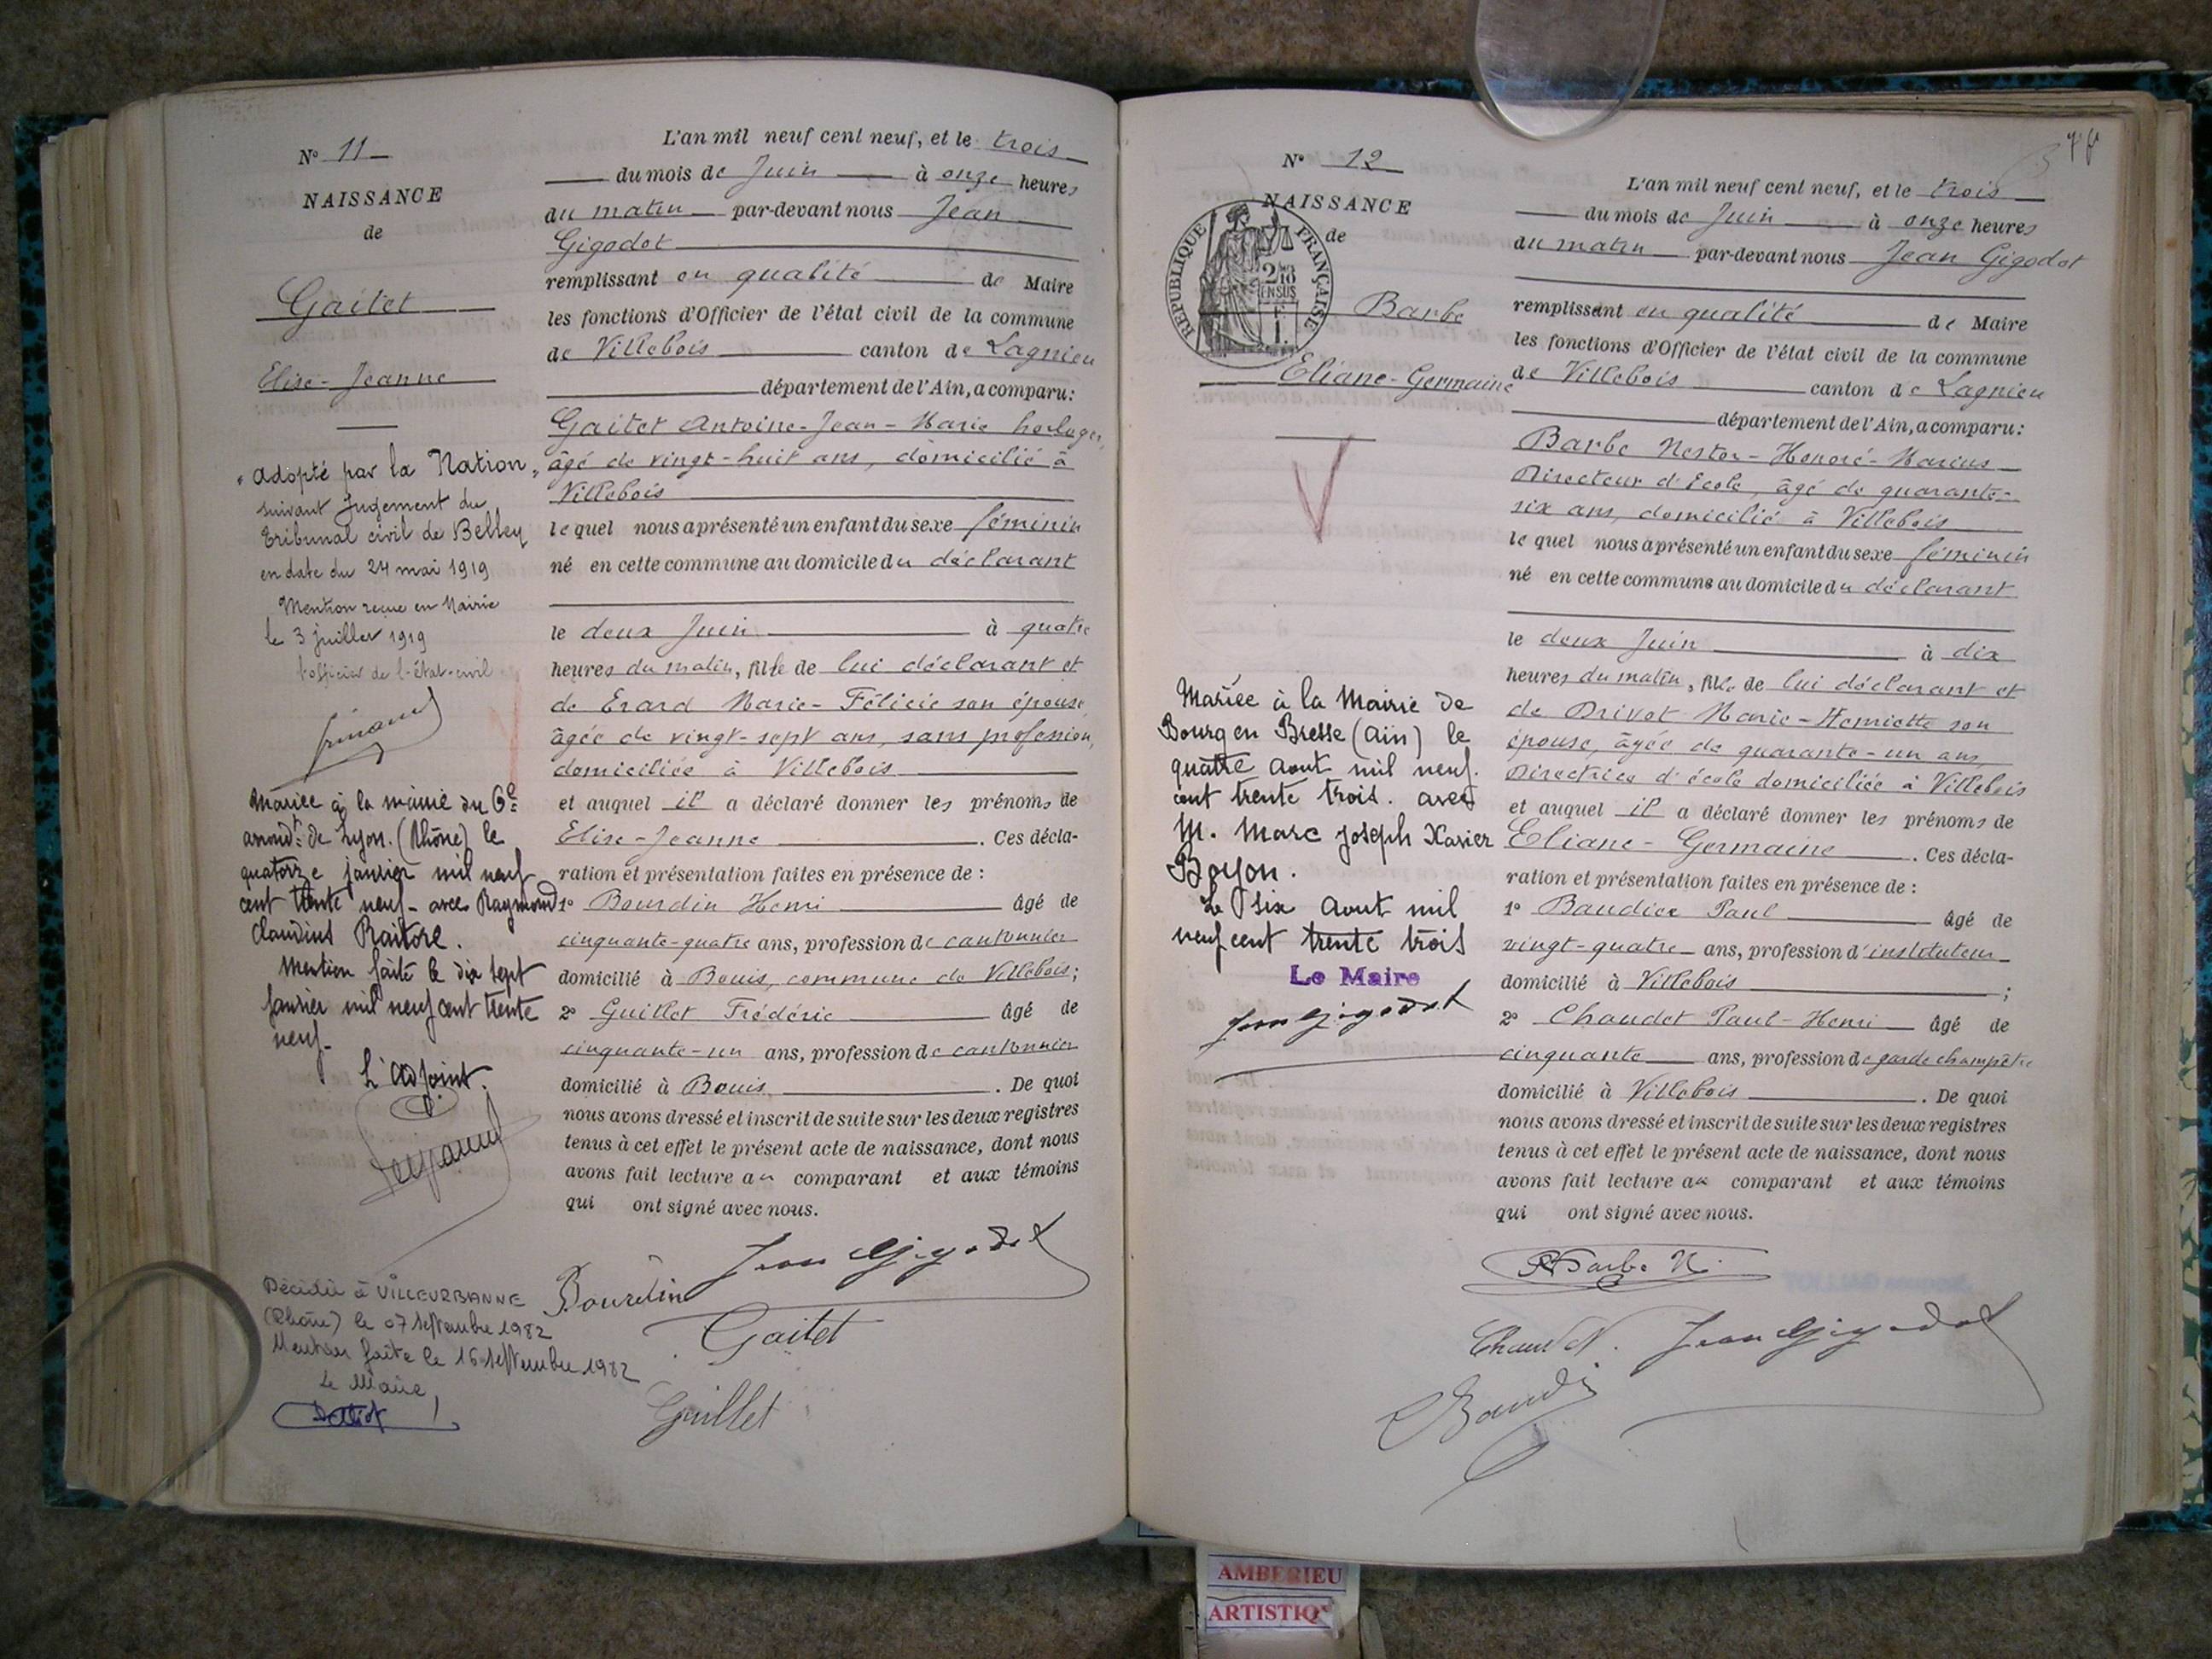 N° 11
NAISSANCE
de
Gaitet
Elise-Jeanne
"Adopté par la Nation"
suivant Jugement du
Tribunal civil de Belley
en date du 24 mai 1919
Mention reçue en Mairie
le 3 juillet 1919
l'officier de l'état-civil
Mariée à la mairie du 6e
arrondt de Lyon. (Rhône) le
quatorze janvier mil neuf
cent trente neuf - avec Raymond
Claudius
Mention faite le dix sept
janvier mil neuf cent trente
neuf-
L'adjoint.
Décédée à VILLEURBANNE
(Rhône) le 07 septembre 1982
Mention faite le 16 septembre 1982
Le Maire
L'an mil neuf cent neuf, et le trois
du mois de Juin à onze heures
du matin par-devant nous Jean
Gigodot
remplissant en qualité de Maire
les fonctions d'Officier de l'état civil de la commune
de Villebois canton de Lagnieu
département de l'Ain, a comparu:
Gaitet Antoine-Jean-Marie horloger,
âgé de vingt-huit ans, domicilié à
Villebois
lequel nous a présenté un enfant du sexe féminin
né en cette commune au domicile du déclarant
le deux Juin à quatre
heures du matin, fille de lui déclarant et
de Erard Marie-Félicie son épouse,
âgée de vingt-sept ans, sans profession,
domiciliée à Villebois
et auquel il a déclaré donner les prénoms de
Elise-Jeanne. Ces décla-
ration et présentation faites en présence de :
1° Bourdin Henri âgé de
cinquante-quatre ans, profession de cantonnier
domicilié à Bouis, commune de Villebois;
2° Guillet Frédéric âgé de
cinquante-un ans, profession de cantonnier
domicilié à Bouis. De quoi
nous avons dressé et inscrit de suite sur les deux registres
tenus à cet effet le présent acte de naissance, dont nous
avons fait lecture au comparant et aux témoins
qui ont signé avec nous.
Jean Gigodot
Bourdin
Gaitet
Guillet
N° 12
NAISSANCE
de
RÉPUBLIQUE FRANÇAISE
Barbe
Eliane-Germaine
Mariée à la Mairie de
Bourg en Bresse (Ain) le
quatre Aout mil neuf
cent trente trois. avec
M. Marc Joseph Xavier
Boyon.
Le six Aout mil
neuf cent trente trois
Le Maire
Jean Gigodot
L'an mil neuf cent neuf, et le trois
du mois de Juin à onze heures
du matin par-devant nous Jean Gigodot
remplissant en qualité de Maire
les fonctions d'Officier de l'état civil de la commune
de Villebois canton de Lagnieu
département de l'Ain, a comparu:
Barbe Nestor-Honoré-Marius
Directeur d'Ecole, âgé de quarante-
six ans, domicilié à Villebois
lequel nous a présenté un enfant du sexe féminin
né en cette commune au domicile du déclarant
le deux Juin à dix
heures du matin, fille de lui déclarant et
de Drivot Marie-Henriette son
épouse, âgée de quarante-un ans,
Directrice d'école domiciliée à Villebois
et auquel il a déclaré donner les prénoms de
Eliane-Germaine. Ces décla-
ration et présentation faites en présence de :
1° Baudier Paul âgé de
vingt-quatre ans, profession d'instituteur
domicilié à Villebois;
2° Chaudet Paul-Henri âgé de
cinquante ans, profession de garde champêtre
domicilié à Villebois. De quoi
nous avons dressé et inscrit de suite sur les deux registres
tenus à cet effet le présent acte de naissance, dont nous
avons fait lecture au comparant et aux témoins
qui ont signé avec nous.
Barbe N.
Chaudet. Jean Gigodot
AMBERIEU
ARTISTIQ